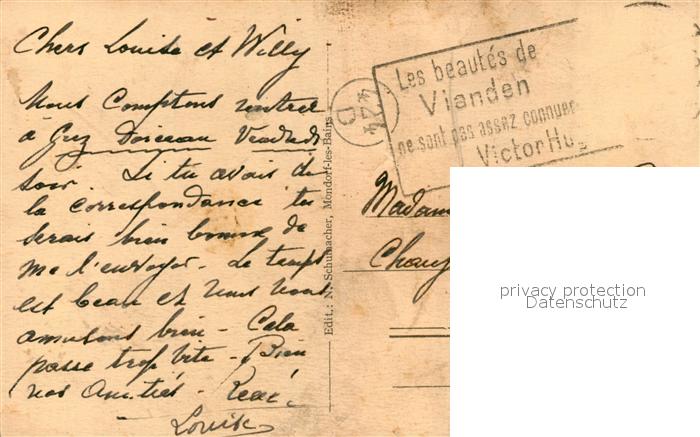 Chers Louise et Willy
Nous Comptons rentrer
à Grez Doiceau Vendredi
soir. Si tu avais de
la correspondance tu
serais bien bonne de
me l'envoyer - Le temps
est beau et nous nous
amusons bien - Cela
passe trop vite - Bien
nos Amitiés - René.
Louise
Edit.: N. Schumacher, Mondorf-les-Bains
Les beautés de
Vianden
ne sont pas assez connues
Victor Hu
Madam
privacy protection
Datenschutz